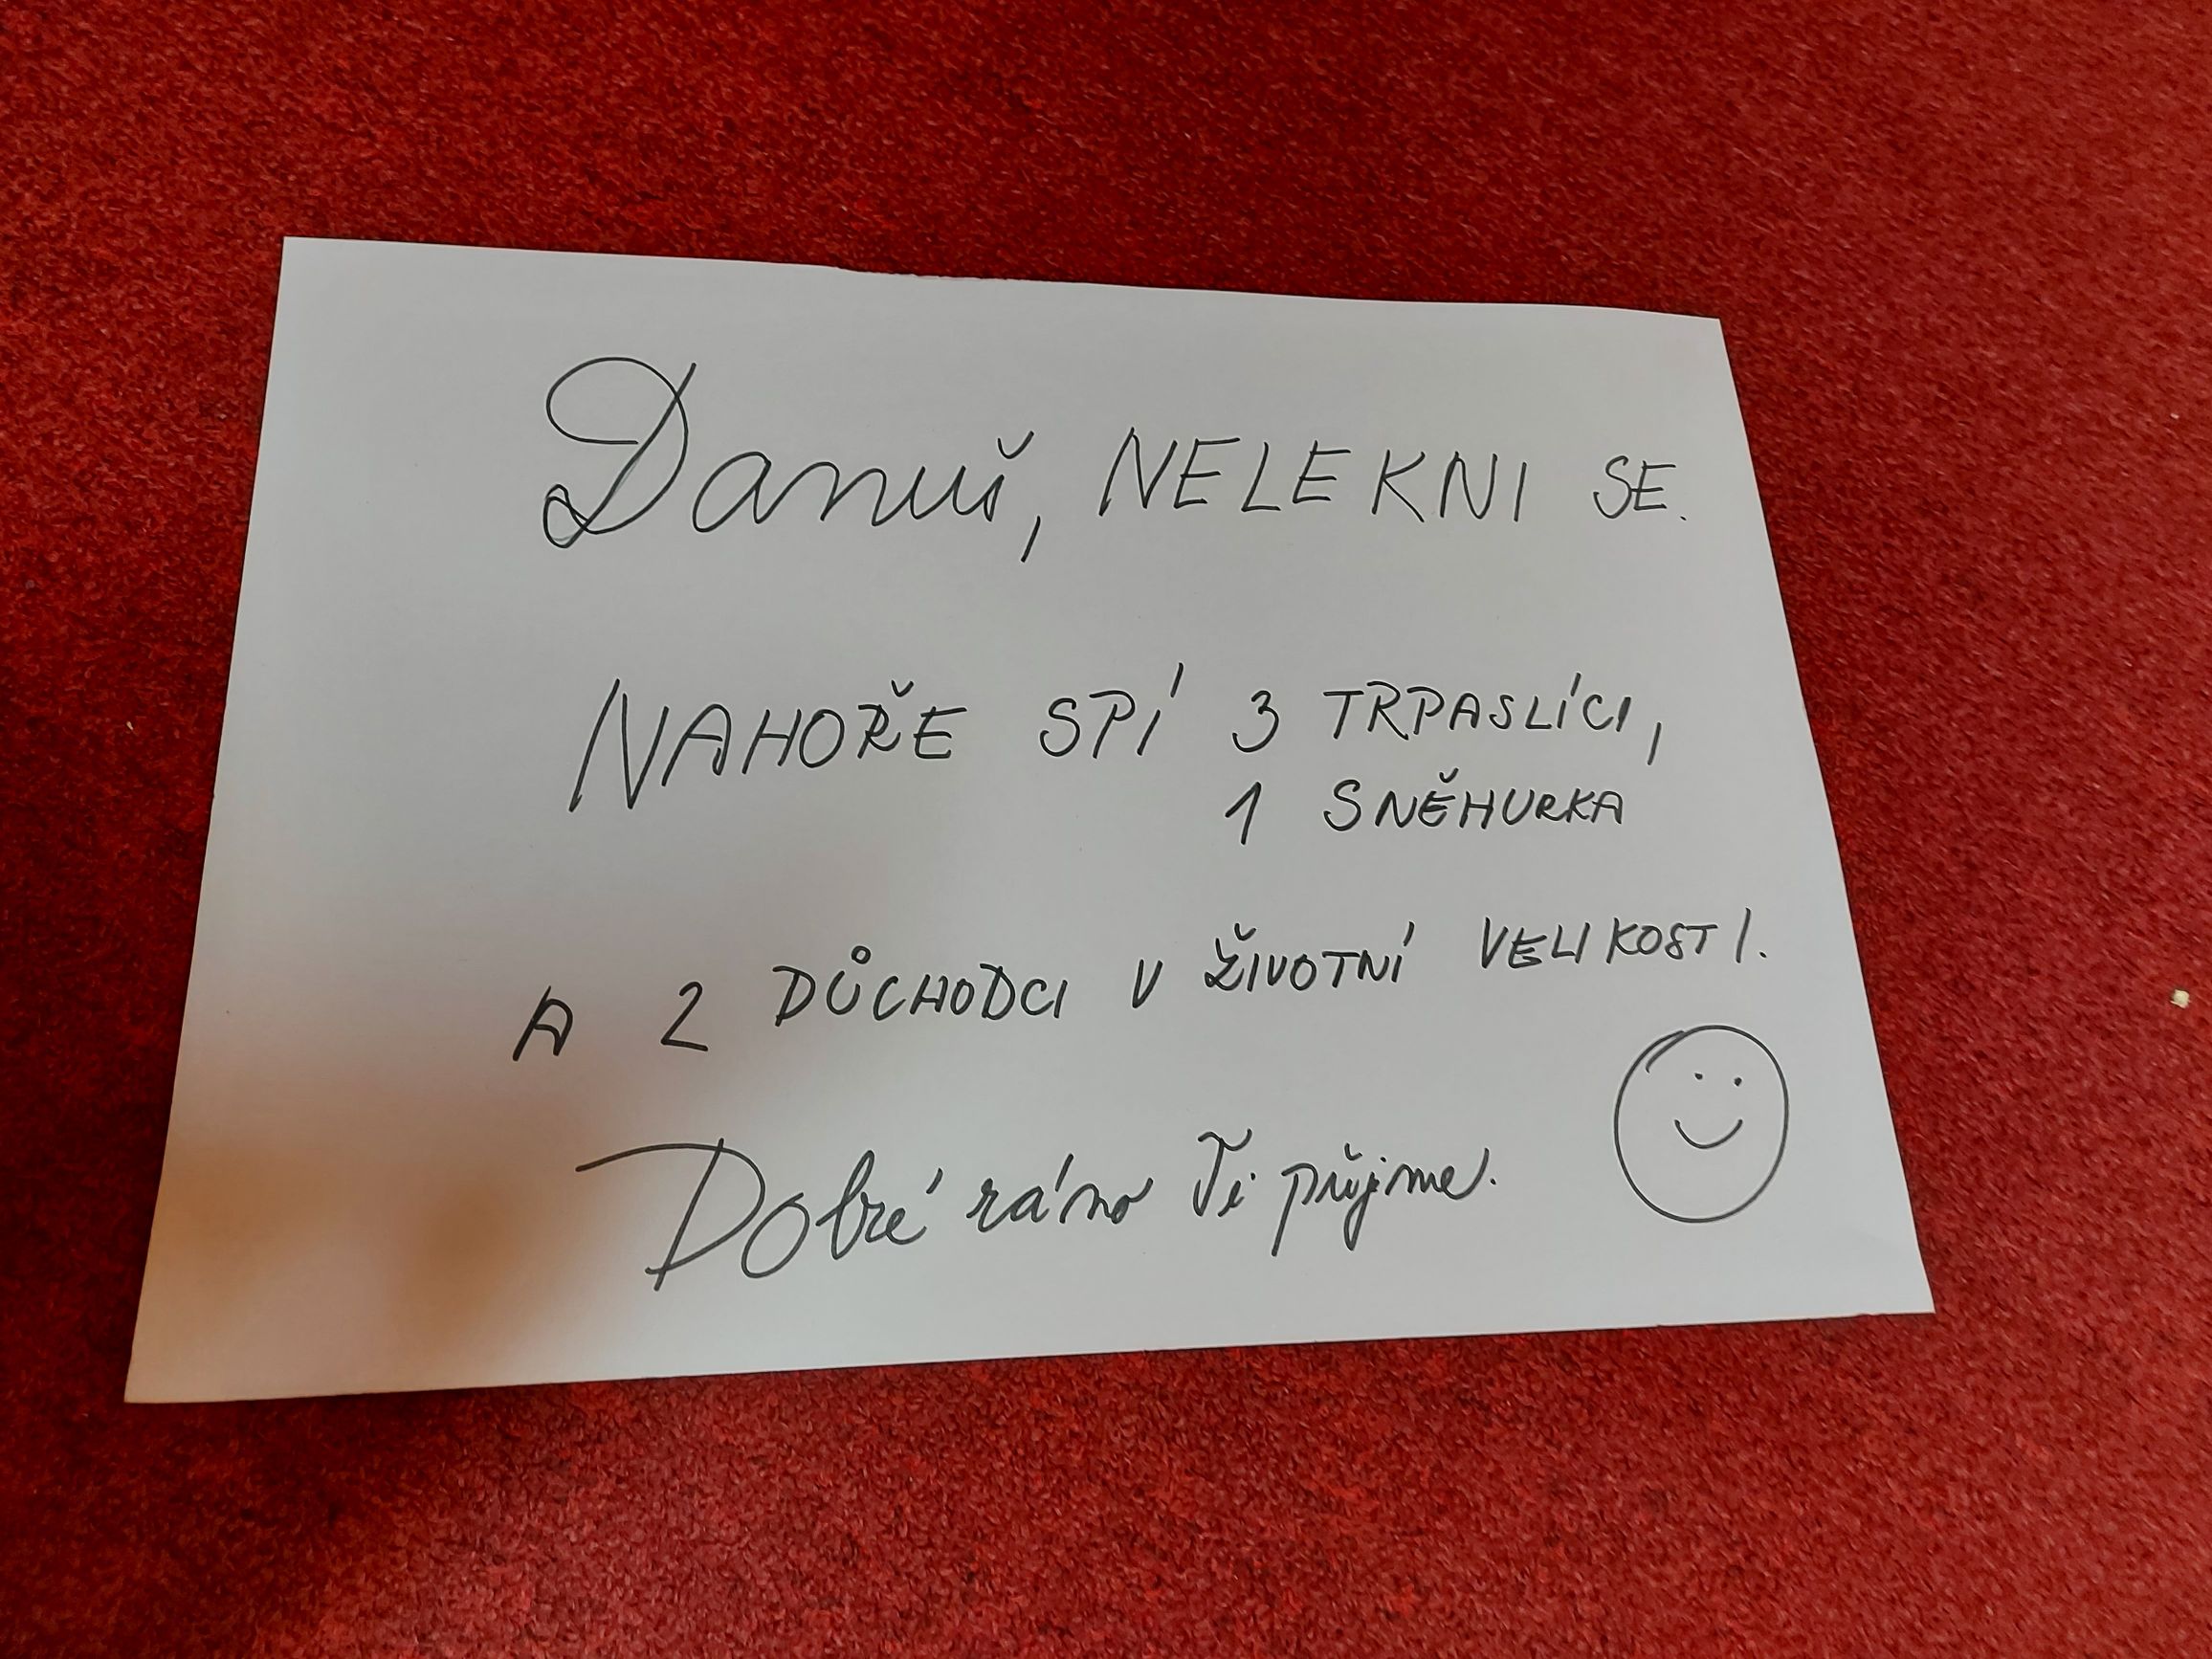 Danuš, NELEKNI SE.
NAHOŘE SPÍ 3 TRPASLÍCI,
1 SNĚHURKA
A 2 DŮCHODCI V ŽIVOTNÍ VELIKOSTI.
Dobré ráno Ti přijme.